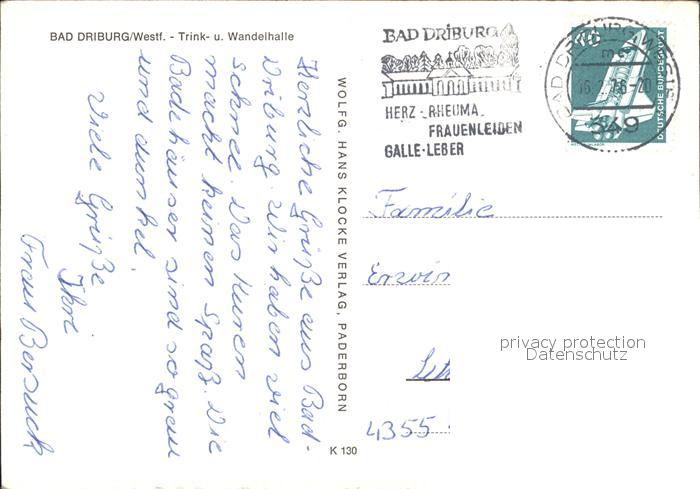 BAD DRIBURG/Westf. - Trink- u. Wandelhalle
Herzliche Grüße aus Bad-
Driburg. Wir haben viel
Schnee. Das Kuren
macht keinen Spaß. Die
Badehäuser sind so grau
und dunkel.
Viele Grüße
Ihre
Frau
WOLFG. HANS KLOCKE VERLAG, PADERBORN
K 130
BAD DRIBURG
HERZ-RHEUMA-
FRAUENLEIDEN
GALLE-LEBER
BAD DRIBURG
349
DEUTSCHE BUNDESPOST
Familie
Erwin
4355
privacy protection
Datenschutz